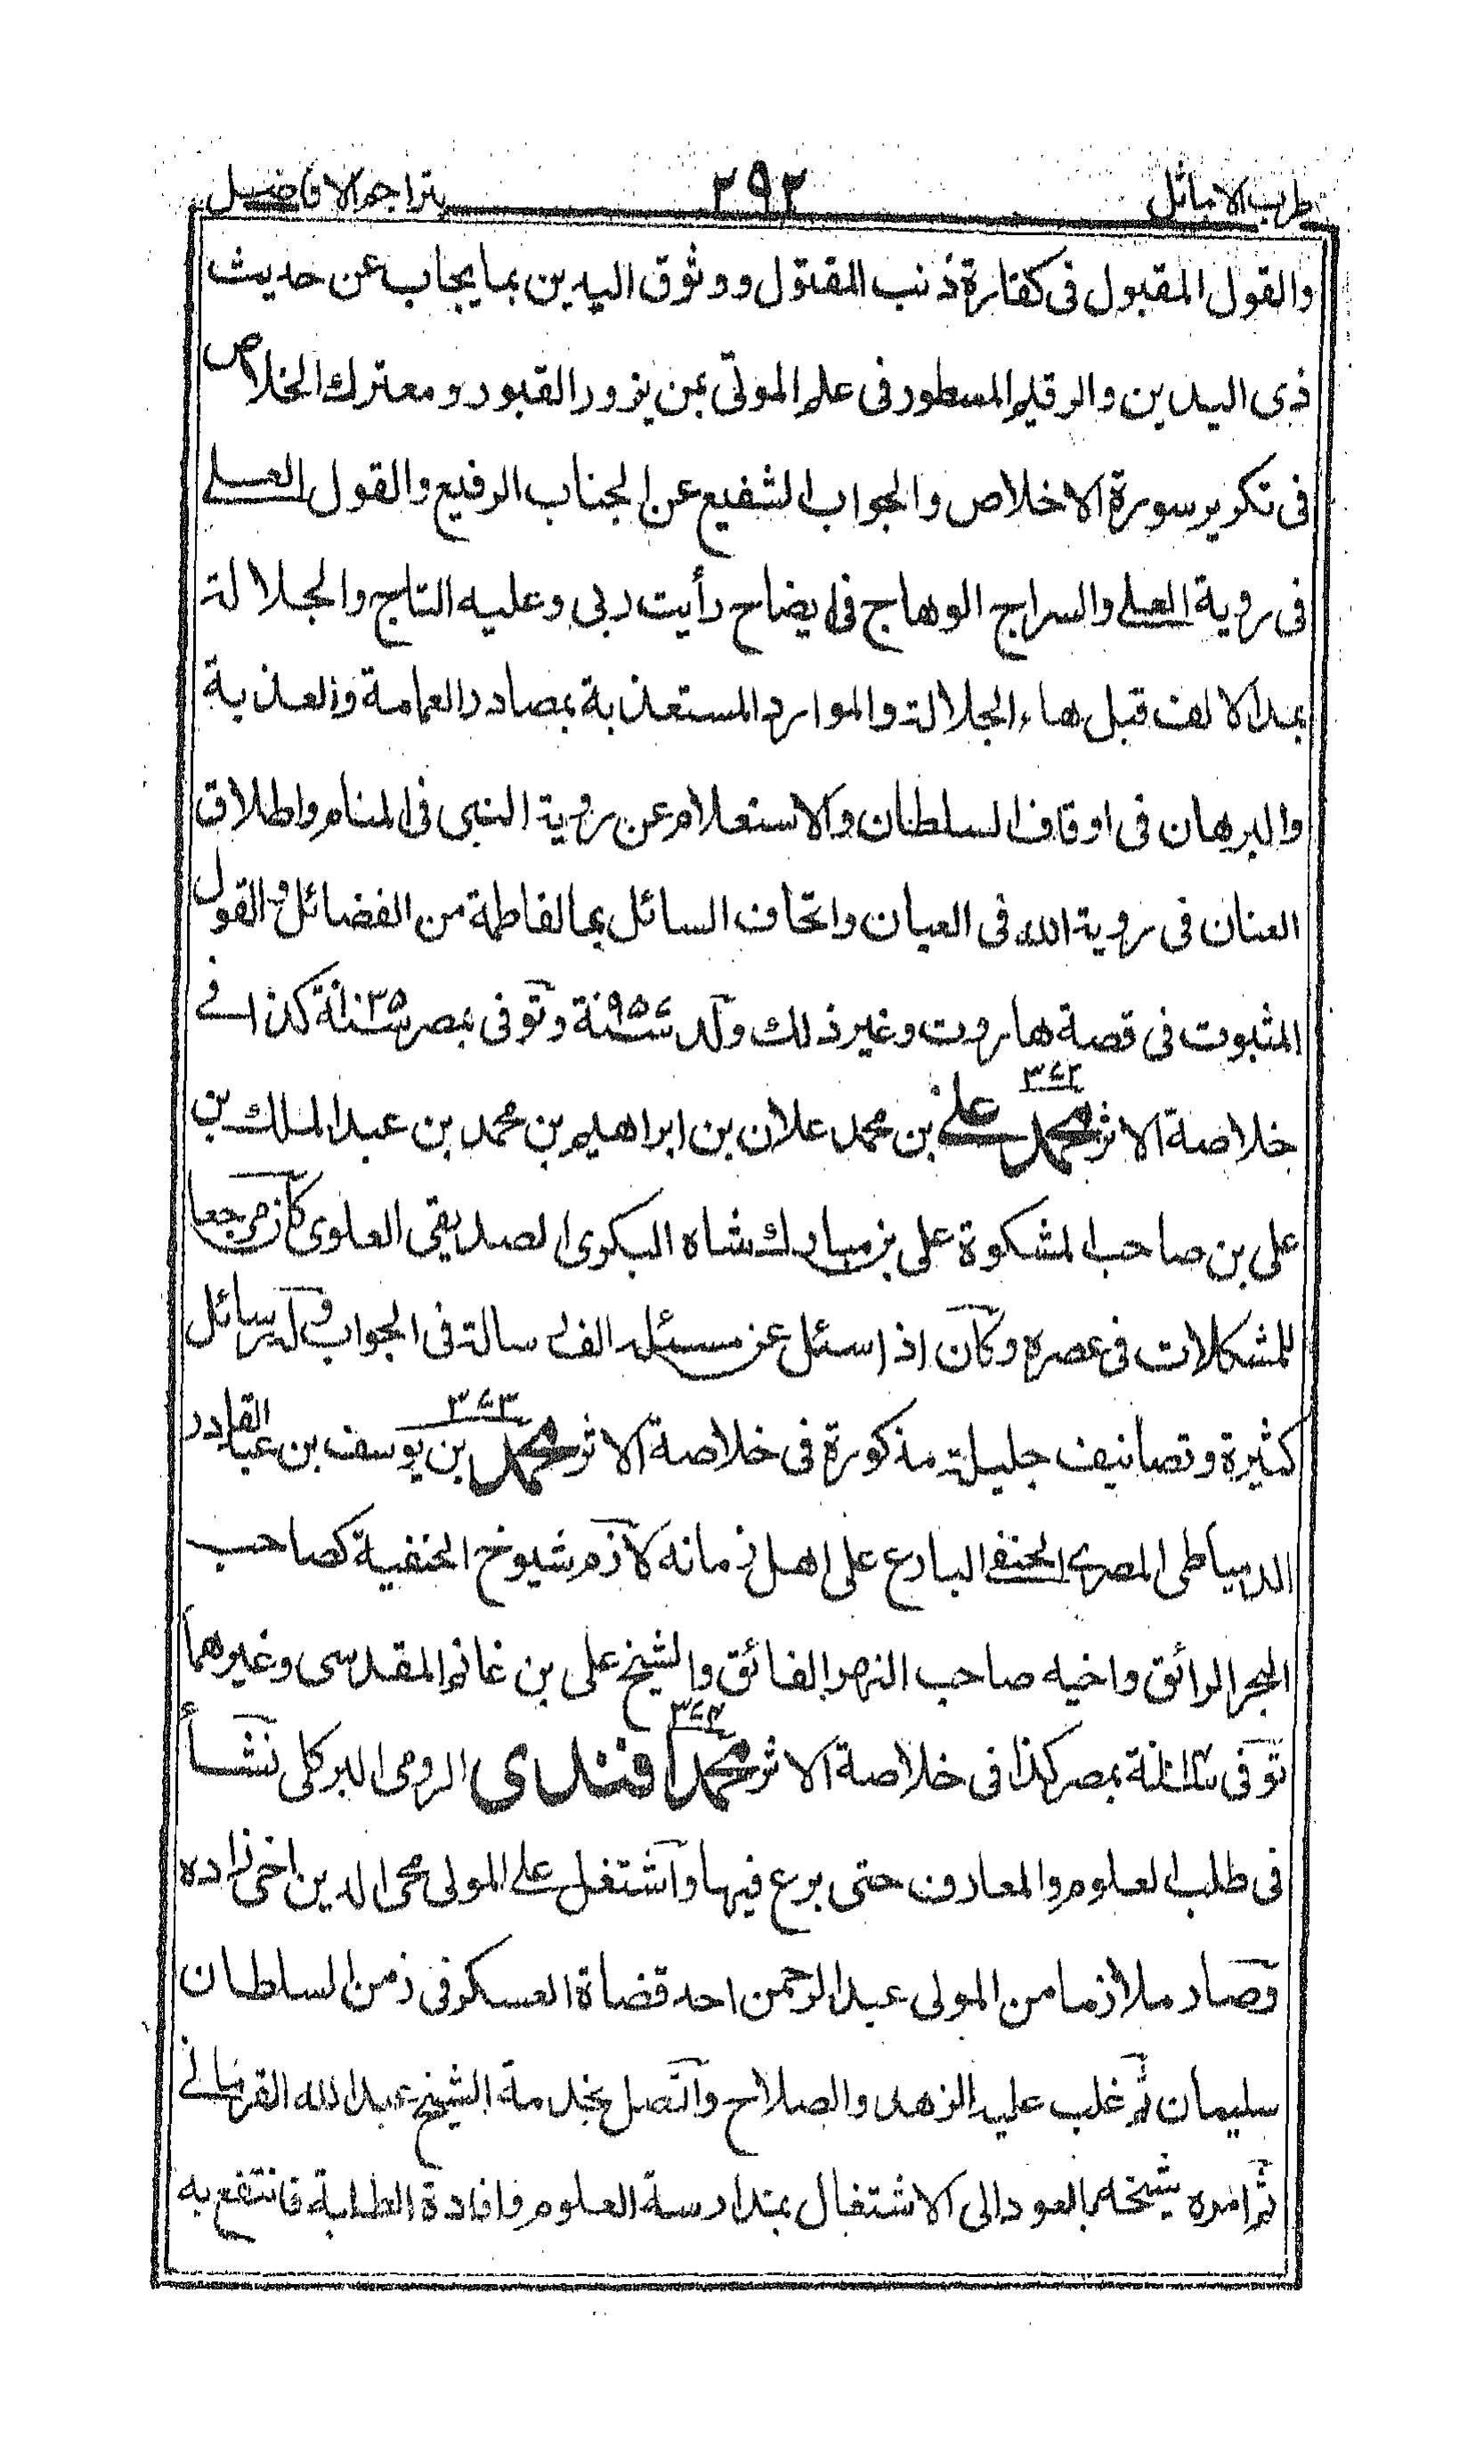 طرب الاماثل ٢٩٢ بتراجم الافاضل
والقول المقبول فى كفارة ذنب المقتول ووثوق اليدين بما يجاب عن حديث
ذى اليدين والرقيم المسطور فى علم الموتى بمن يزور القبور ومعترك الخلاص
فى تكرير سورة الاخلاص والجواب الشفيع عن الجناب الرفيع والقول العلى
فى روية العلى والسراج الوهاج فى ايضاح رأيت ربى وعليه التاج والجلالة
بمد الالف قبل هاء الجلالة والموارد المستعذبة بمصادر العمامة والعذبة
والبرهان فى اوقاف السلطان والاستعلام عن روية النبى فى المنام واطلاق
العنان فى روية الله فى العيان واتحاف السائل بما لفاطمة من الفضائل والقول
المثبوت فى قصة هاروت وغير ذلك ولد سنة ٩٥٤ وتوفى بمصر سنة ١٠٣٥ كذا فى
خلاصة الاثر ٣٤٢ محمد على بن محمد علان بن ابراهيم بن محمد بن عبد الملك بن
على بن صاحب المشكوة على بن مبارك شاه البكرى الصديقى العلوى كان مرجعا
للمشكلات فى عصره وكان اذا سئل عن مسئلة الف رسالة فى الجواب وله رسائل
كثيرة وتصانيف جليلة مذكورة فى خلاصة الاثر ٣٤٣ محمد بن يوسف بن عبد القادر
الدمياطى المصرى الحنفى البارع على اهل زمانه لازم شيوخ الحنفية كصاحب
البحر الرائق واخيه صاحب النهر الفائق والشيخ على بن غانم المقدسى وغيرهما
توفى سنة بمصر كذا فى خلاصة الاثر ٣٤٤ محمد افندى الرومى البركلى نشأ
فى طلب العلوم والمعارف حتى برع فيها واشتغل على المولى محى الدين اخى زاده
وصار ملازما من المولى عبد الرحمن احد قضاة العسكر فى زمن السلطان
سليمان ثم غلب عليه الزهد والصلاح واتصل بخدمة الشيخ عبد الله القرمانى
ثم امره شيخه بالعود الى الاشتغال بمدارسة العلوم وافادة الطلبة فانتفع به